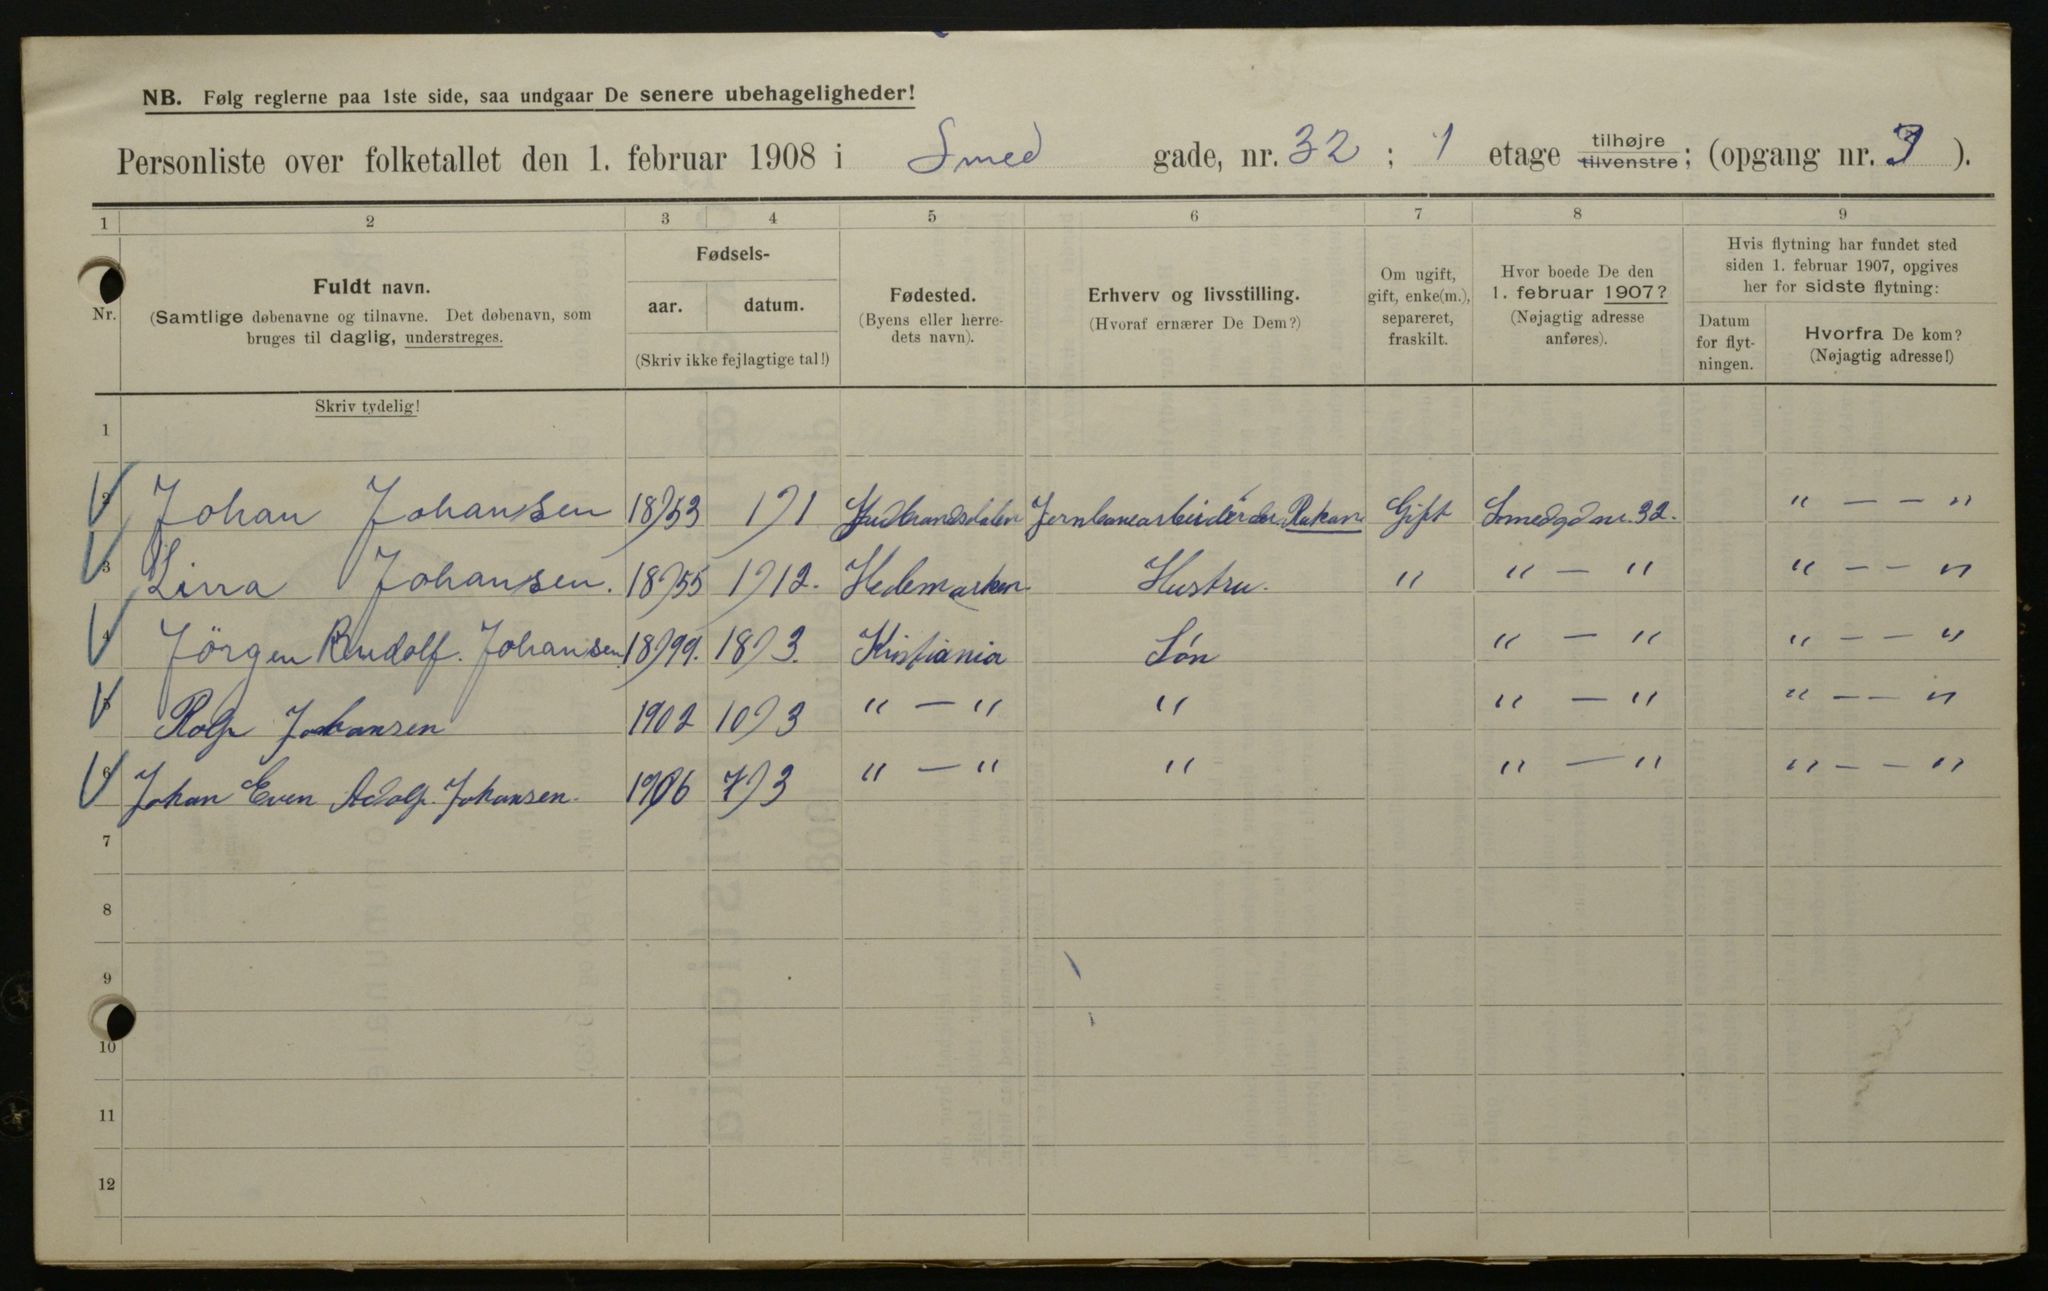 NB. Følg reglerne paa 1ste side, saa undgaar De senere ubehageligheder!
Personliste over folketallet den 1. februar 1908 i Smed gade, nr. 32 ; 1 etage tilhøjre tilvenstre; (opgang nr. ).
1 2 3 4 5 6 7 8 9
Nr.
Fuldt navn.
(Samtlige døbenavne og tilnavne. Det døbenavn, som
bruges til daglig, understreges.
Skriv tydelig!
Fødsels-
aar. datum.
(Skriv ikke fejlagtige tal!)
Fødested.
(Byens eller herre-
dets navn).
Erhverv og livsstilling.
(Hvoraf ernærer De Dem?)
Om ugift,
gift, enke(m.),
separeret,
fraskilt.
Hvor boede De den
1. februar 1907?
(Nøjagtig adresse
anføres).
Hvis flytning har fundet sted
siden 1. februar 1907, opgives
her for sidste flytning:
Datum
for flyt-
ningen.
Hvorfra De kom?
(Nøjagtig adresse!)
1
2 Johan Johansen 18)53 1)1 Gudbrandsdalen Jernbanearbeider Gift Smedgd nr. 32. " — — "
3 Johansen. 18)55 1)12. Hedemarken Hustru. " " — " " — — "
4 Jörgen Rudolf. Johansen 18)99. 18)3. Kristiania Søn " — " " — — "
5 Rolf Johansen 1902 10)3 " — " " " — " " — — "
6 Johan Even Adolf. Johansen. 1906 7)3 " — " " " — " " — — "
7
8
9
10
11
12